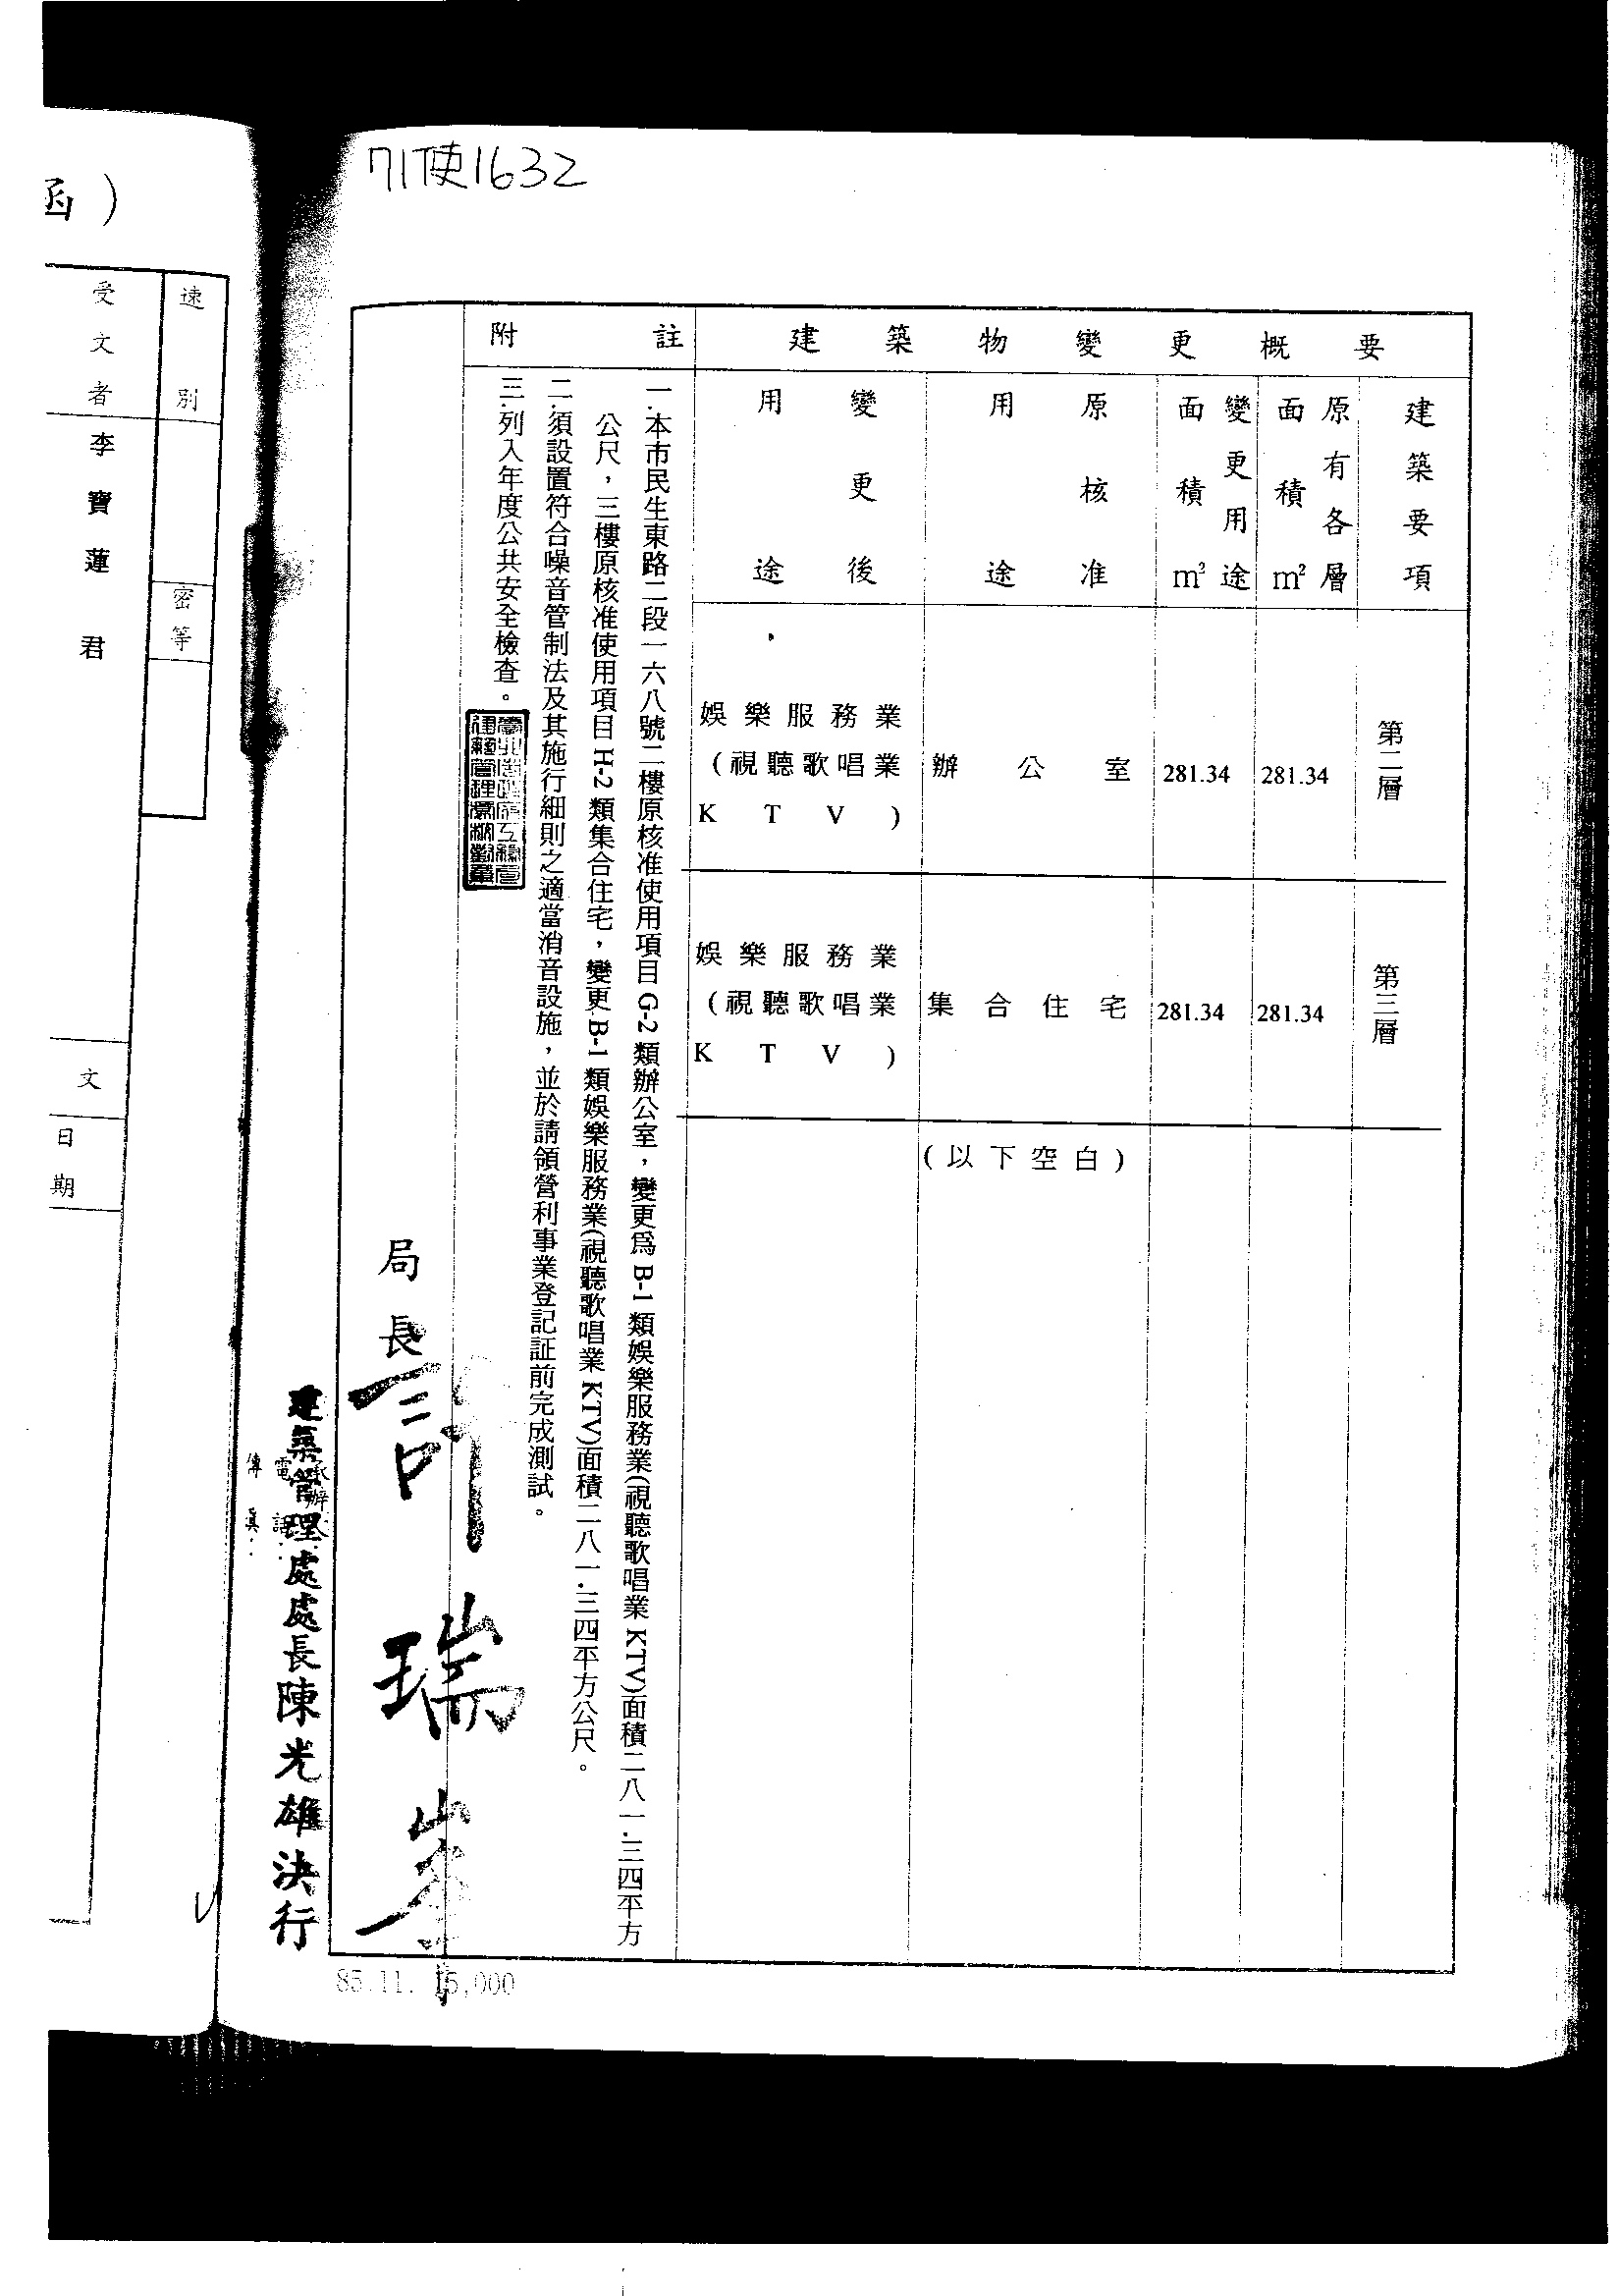 71使1632
函）
速別
密等
受文者
李寶蓮君
文
日期
建築物變更概要
附註
建築要項
原有各層面積m²
變更用途面積m²
原核准用途
變更後用途
第二層
281.34
281.34
辦公室
娛樂服務業
(視聽歌唱業
KTV)
第三層
281.34
281.34
集合住宅
娛樂服務業
(視聽歌唱業
KTV)
(以下空白)
一.本市民生東路二段一六八號二樓原核准使用項目G-2類辦公室，變更為B-1類娛樂服務業(視聽歌唱業KTV)面積二八一.三四平方
公尺，三樓原核准使用項目H-2類集合住宅，變更B-1類娛樂服務業(視聽歌唱業KTV)面積二八一.三四平方公尺。
二.須設置符合噪音管制法及其施行細則之適當消音設施，並於請領營利事業登記証前完成測試。
三.列入年度公共安全檢查。
局長
瑞
建築管理處處長陳光雄決行
承辦
電話：
傳真：
85.11. 15,000